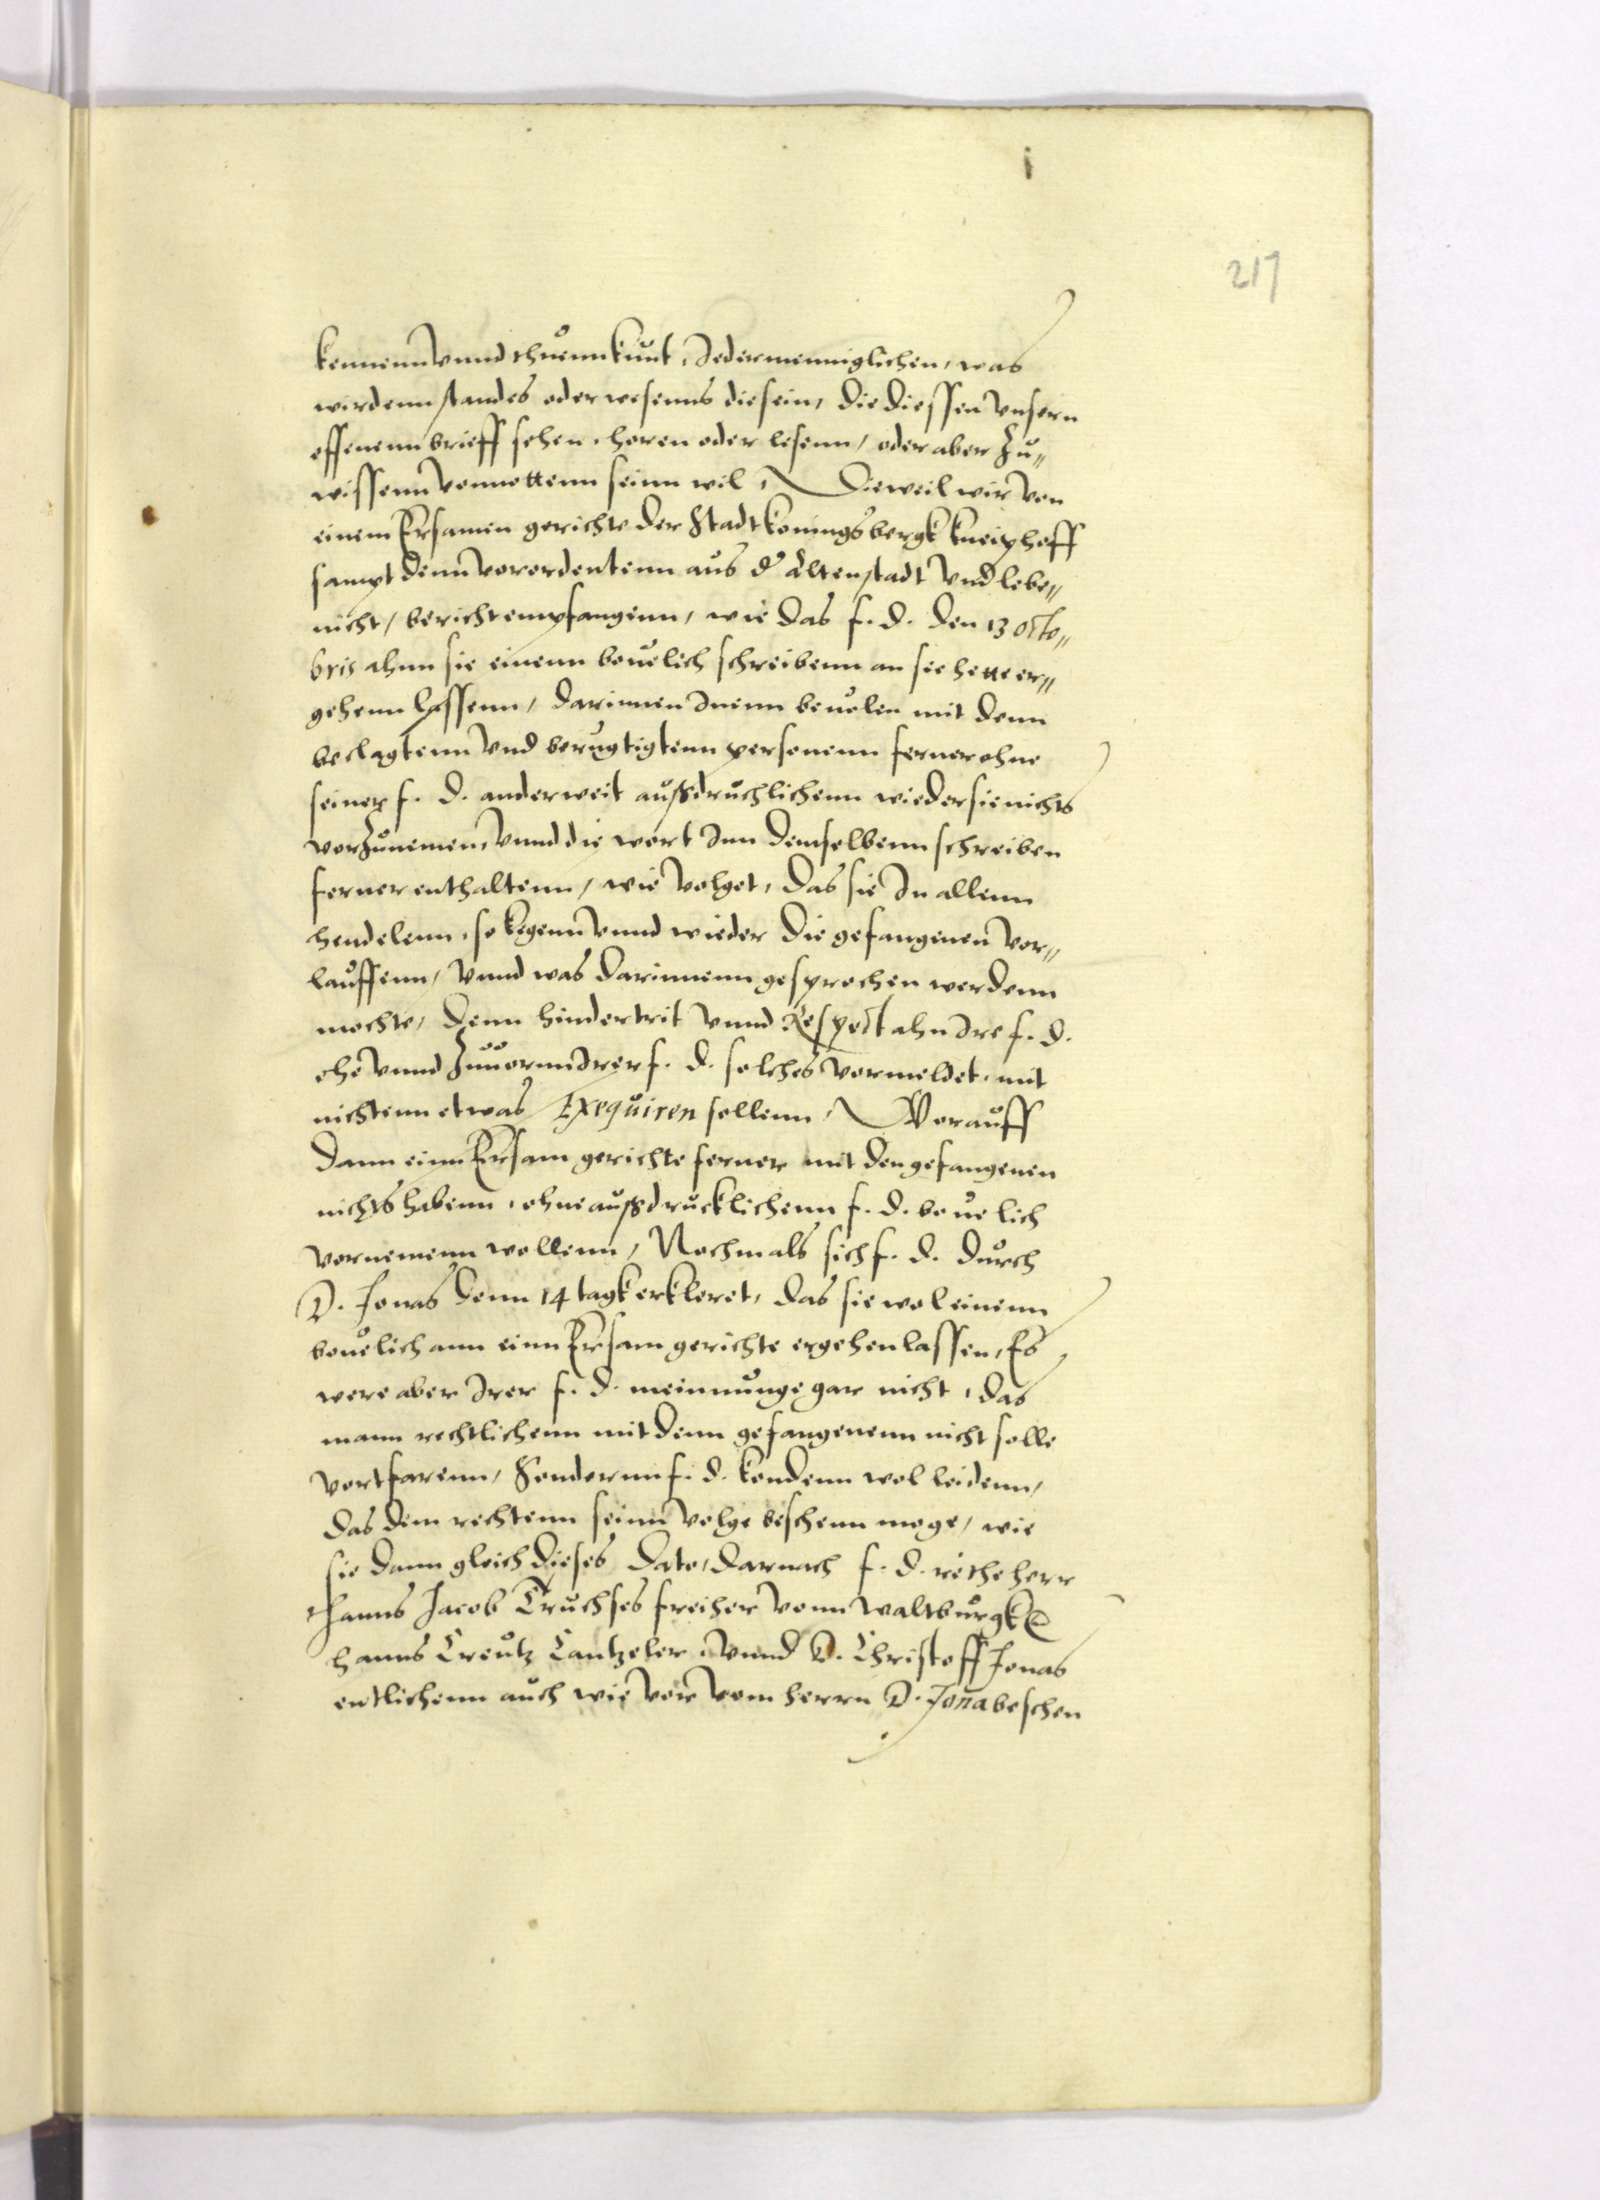 217
kennenn vnnd thuenn kunt, Jedermenniglichen, was
wirdenn standes oder wesenns die sein, die diessen vnsern
offenenn brieff sehen, horen oder lesenn, oder aber Zu„
wissenn vonnottenn seinn wil, Dieweil wir von
einem Ersamen gerichte der Stadt Koningsbergk kneiphoff
sampt denn verordentenn aus d' Altenstadt vnd lebe„
nicht, bericht empfangenn, wie das f. d. den 13 octo„
bris ahnn sie einenn beuelich schreibenn an sie hette er„
gehenn lassenn, darinnen Inenn beuolen mit denn
beclagtenn vnd berugtigtenn personenn ferner ohne
seiner f. d. anderweit außdruchlichenn wieder sie nichts
vorzunemen, vnnd die wort Inn demselbenn schreiben
ferner enthaltenn, wie volget, das sie In allenn
hendelenn, so kegenn vnnd wieder die gefangenen vor„
lauffenn, vnnd was darinnenn gesprochen werdenn
mochte, denn hindertrit vnnd Respect ahn Ire f. d.
ehe vnnd Zuuorn Irer f. d. solches vormeldet, mit
nichtenn etwas Exequiren sollenn, Worauff
dann einn Ersam gerichte ferner mit den gefangenen
nichts habenn, ohne außdrucklichenn f. d. beuelich
vornemenn wollenn, Nochmals sich f. d. durch
D. Jonas denn 14 tagk erkleret, das sie wol einenn
beuelich ann einn Ersam gerichte ergehen lassen, Es
were aber Irer f. d. meinnunge gar nicht, das
mann rechtlichenn mit denn gefangenenn nicht solle
vortfarenn, Sondernn f. d. kondenn wol leidenn,
das dem rechtenn seinn volge beschenn moge, wie
sie dann gleich dieses dato, darnach f. d. rethe herr
Hanns Jacob Truchses freiher vonn Waltburgk
hanns Creutz Cantzeler, vnnd D. Christoff Jonas
entlichenn auch wie vor vom herrn D. Jona beschen